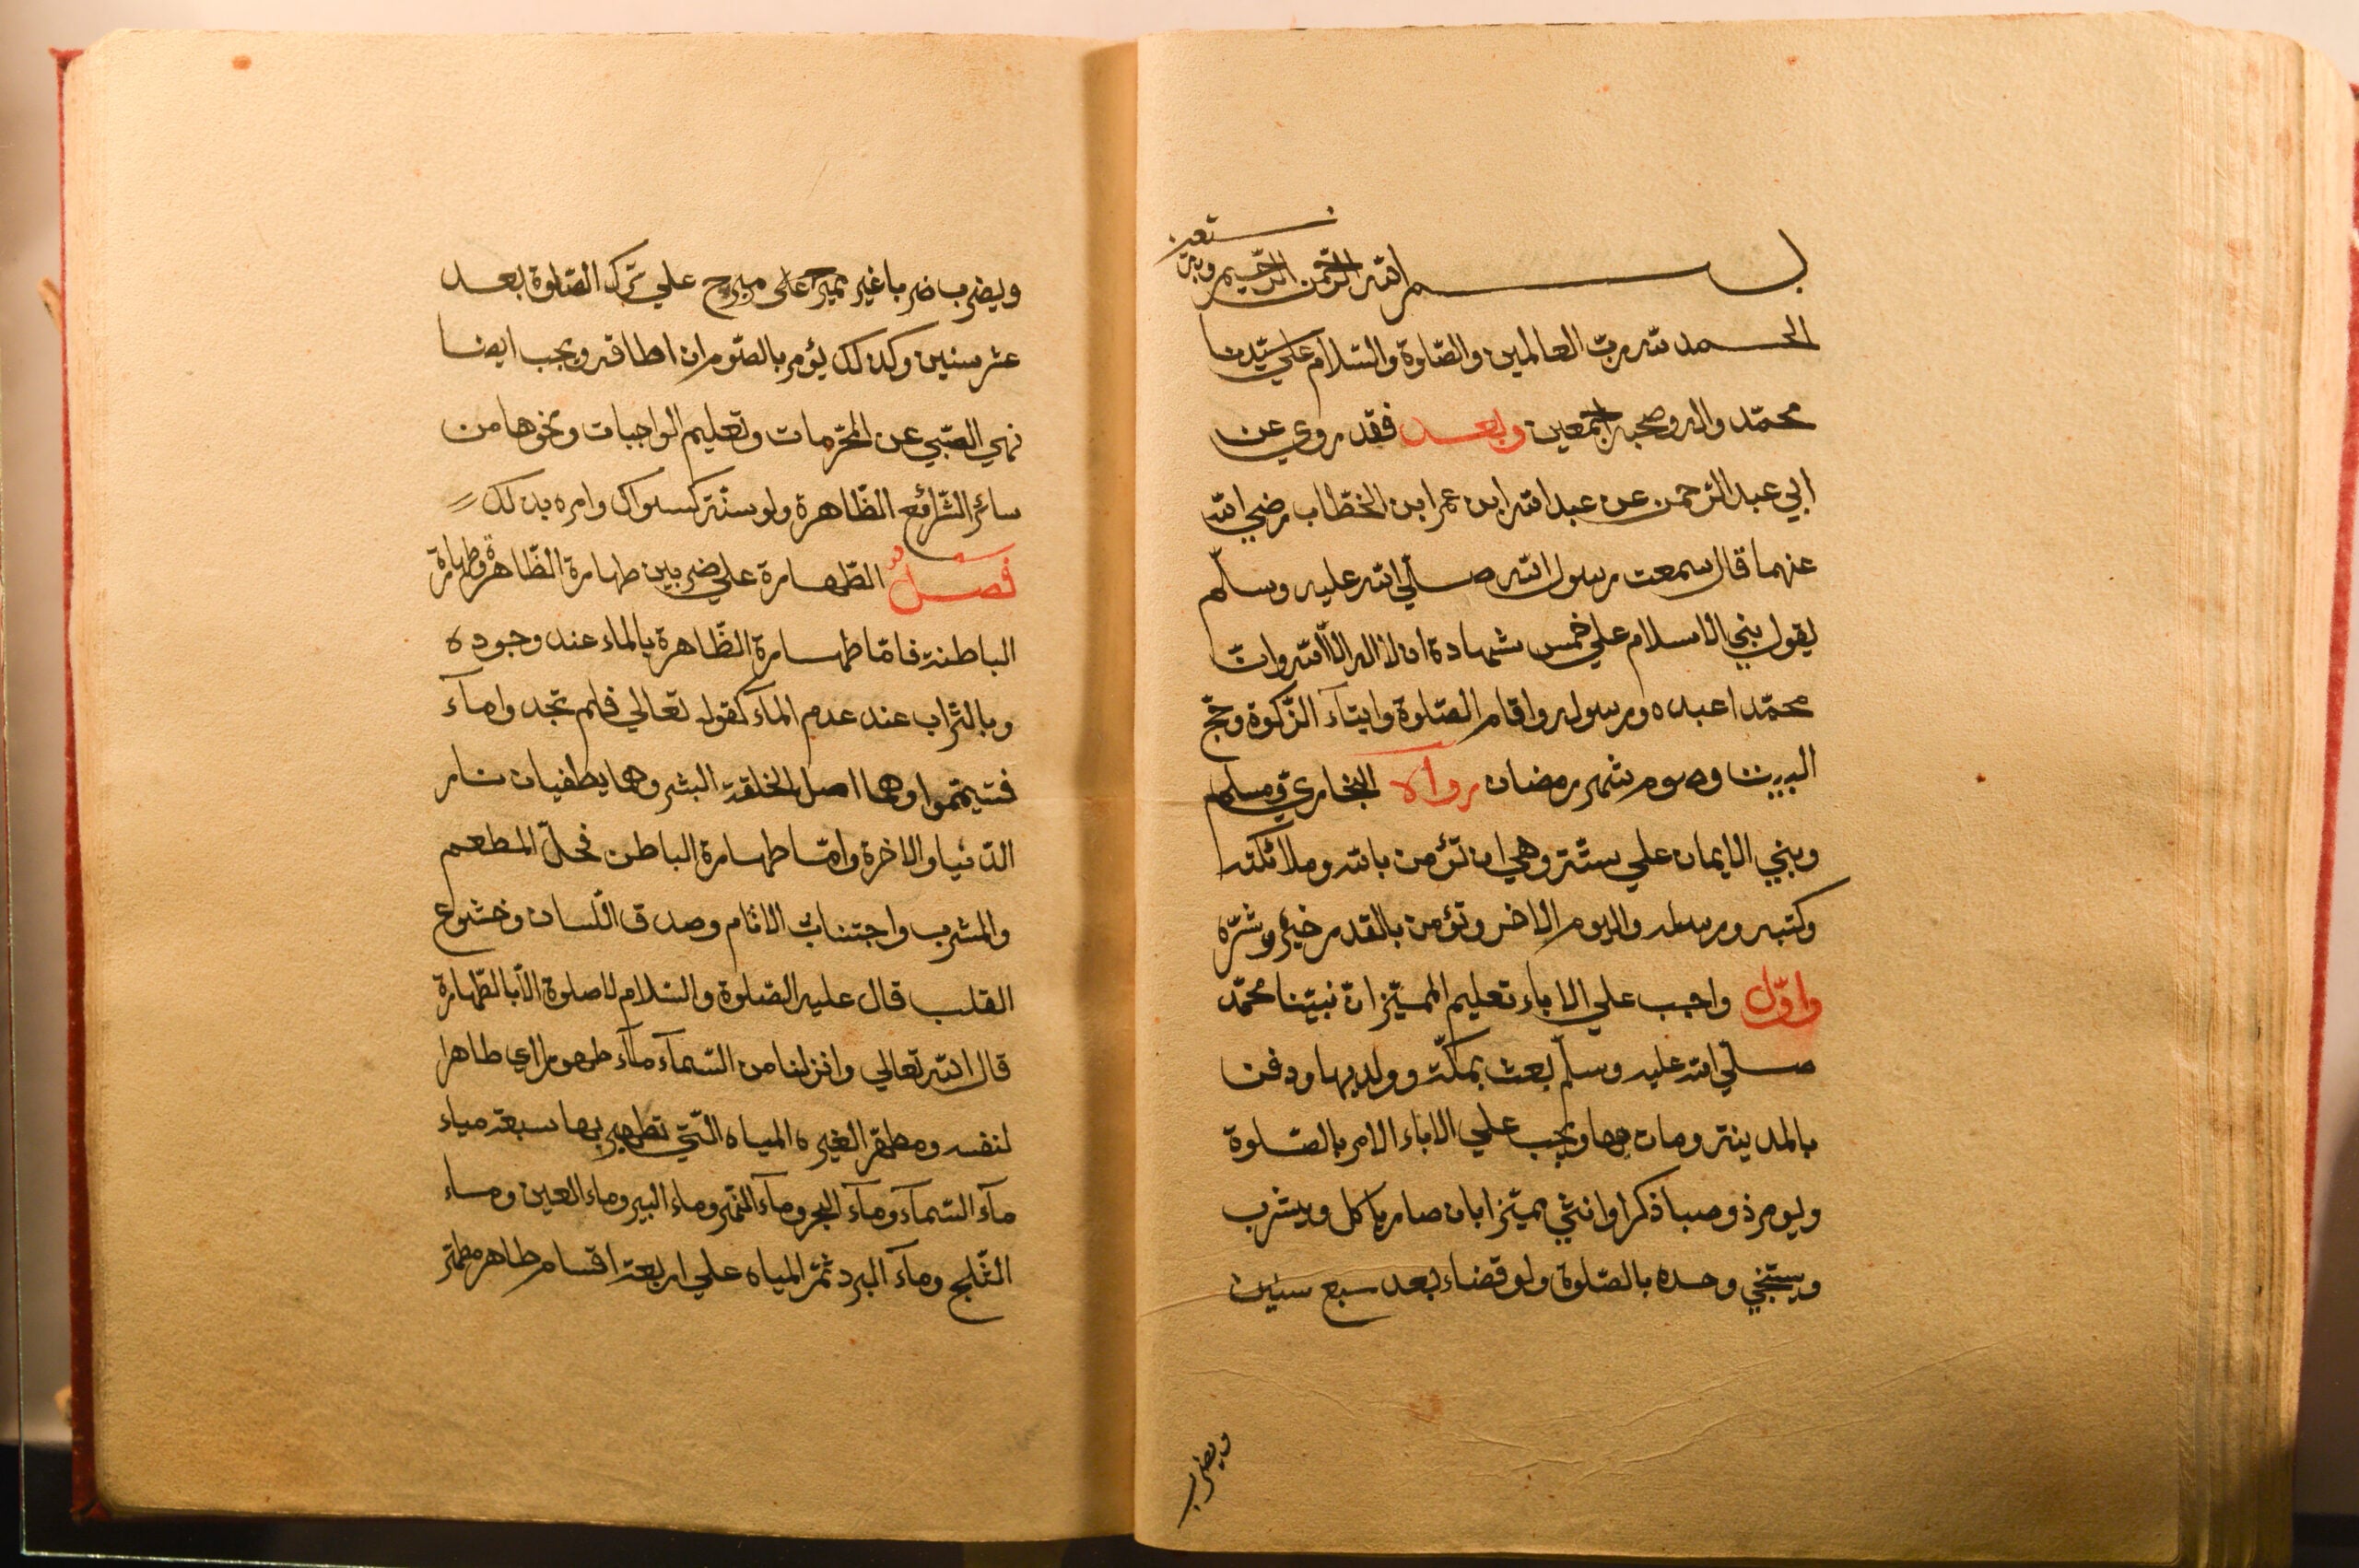 بسم الله الرحمن الرحيم وبه نستعين
الحمد لله رب العالمين والصّلوة والسّلام علي سيّدنا
محمّد واله وصحبه اجمعين وبعد فقد روي عن
ابي عبد الرّحمن عن عبد الله ابن عمر ابن الخطّاب رضي الله
عنهما قال سمعت رسول الله صلّي الله عليه وسلّم
يقول بني الاسلام علي خمس شهادة ان لا اله الاّ الله وانّ
محمّدا عبده ورسوله واقام الصّلوة وايتآء الزّكوة وحجّ
البيت وصوم شهر رمضان رواه البخاري ومسلم
وبني الايمان علي ستّة وهي ان تؤمن بالله وملائكته
وكتبه ورسله واليوم الاخر وتؤمن بالقدر خيره وشرّه
واوّل واجب علي الاباء تعليم المميّز انّ نبيّنا محمّد
صلّي الله عليه وسلّم بعث بمكّة وولد بها ودفن
بالمدينة ومات بها ويجب علي الاباء الامر بالصّلوة
ويومر ذو صبا ذكرا وانثي مميّزا بان صار ياكل ويشرب
ويستنجي وحده بالصّلوة ولو قضاء بعد سبع سنين
ويضرب
ويضرب ضربا غير مبرح علي ترك الصّلوة بعد
عشر سنين وكذلك يؤمر بالصّوم ان اطاقه ويجب ايضا
نهي الصّبي عن المحرّمات وتعليم الواجبات ونحوها من
سائر الشّرائع الظّاهرة ولو سنّة كسواك وامره بذلك
فصلٌ الطّهارة علي ضربين طهارة الظّاهرة وطهارة
الباطنة فامّا طهارة الظّاهرة بالماء عند وجوده
وبالتّراب عند عدم المآء كقوله تعالي فلم تجدوا مآء
فتيمّموا وهما اصل الخلقة البشر وهما يطفيان نار
الدّنيا والاخرة وامّا طهارة الباطن فحلّ المطعم
والمشرب واجتناب الاثام وصدق اللّسان وخشوع
القلب قال عليه الصّلوة والسّلام لا صلوة الاّ بالطّهارة
قال الله تعالي وانزلنا من السّمآء مآء طهورا اي طاهرا
لنفسه ومطهّر الغيره المياه الّتي تطهير بها سبعة مياه
مآء السّمآء ومآء البحر ومآء النّهر وماء البير وماء العين وماء
الثّلج ومآء البرد ثمّ المياه علي اربعة اقسام طاهر مطهّر